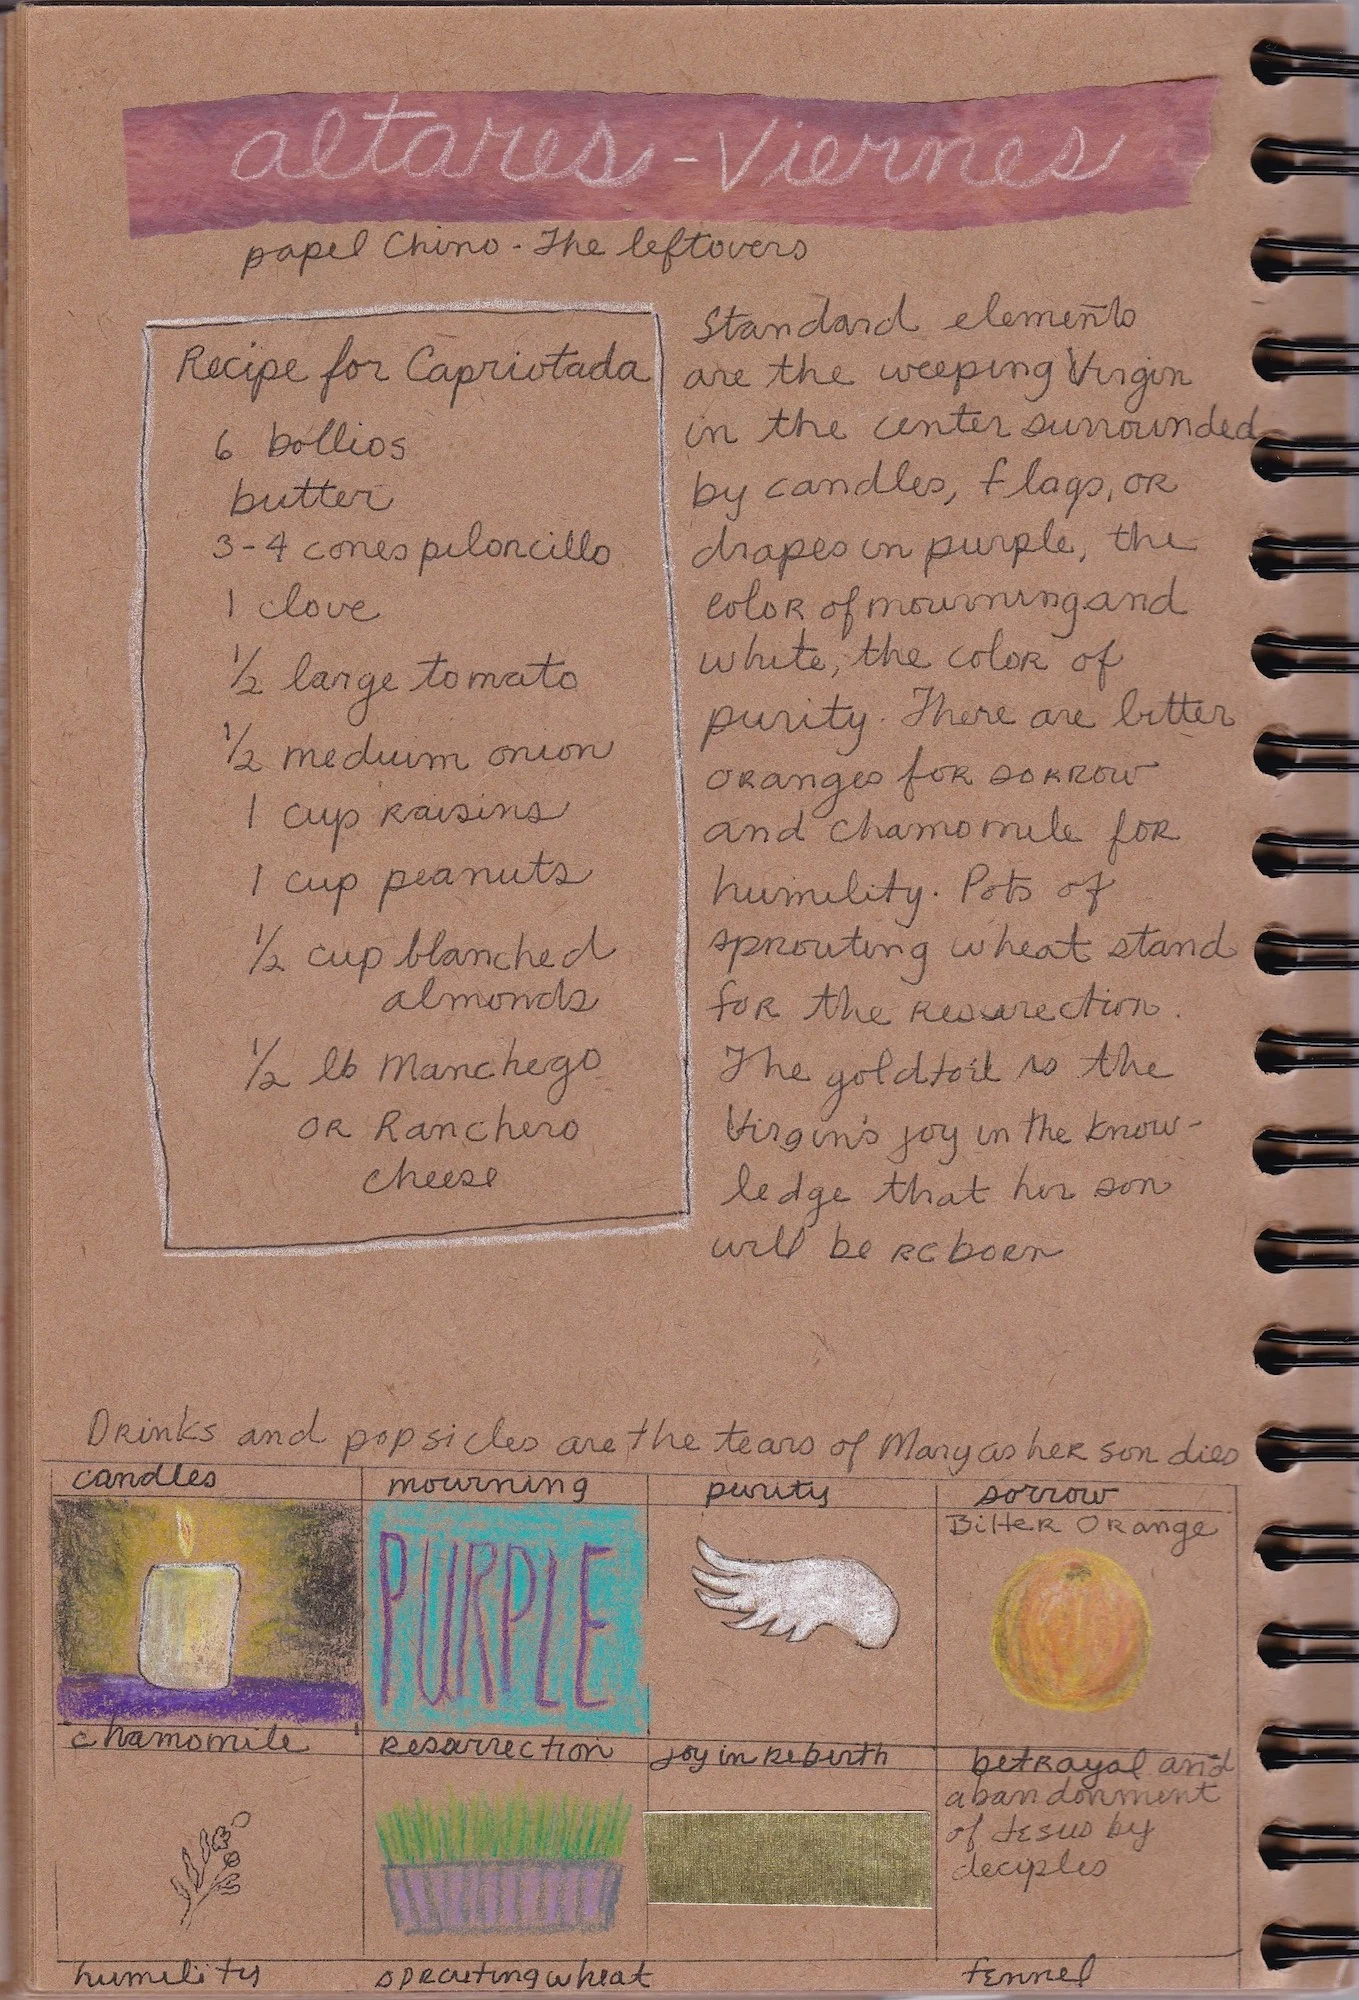 altares - Viernes
papel Chino - The leftovers
Recipe for Capriotada
6 bollios
butter
3-4 cones piloncillo
1 clove
1/2 large tomato
1/2 medium onion
1 cup raisins
1 cup peanuts
1/2 cup blanched
almonds
1/2 lb Manchego
or Ranchero
cheese
Standard elements
are the weeping Virgin
in the center surrounded
by candles, flags, or
drapes in purple, the
color of mourning and
white, the color of
purity. There are bitter
oranges for sorrow
and chamomile for
humility. Pots of
sprouting wheat stand
for the resurection.
The goldfoil is the
Virgin's joy in the know-
ledge that her son
will be reborn
Drinks and popsicles are the tears of Mary as her son dies
candles
mourning
purity
sorrow
Bitter Orange
PURPLE
chamomile
resarrection
joy in rebirth
betrayal and
abandonment
of Jesus by
deciples
humility
sprouting wheat
fennel